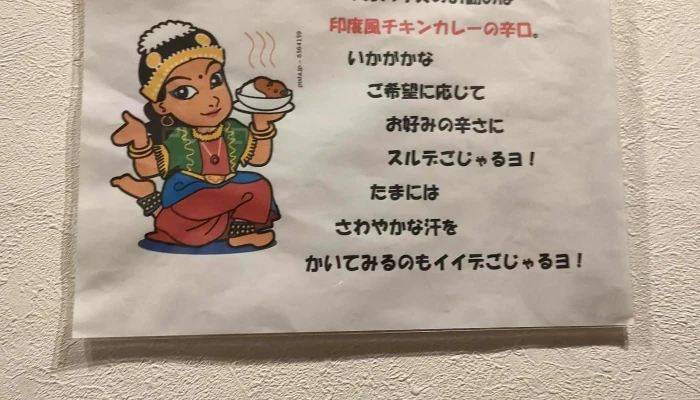 印度風チキンカレーの辛口。
いかがかな
ご希望に応じて
お好みの辛さに
スルデごじゃるヨ！
たまには
さわやかな汗を
かいてみるのもイイデごじゃるヨ！